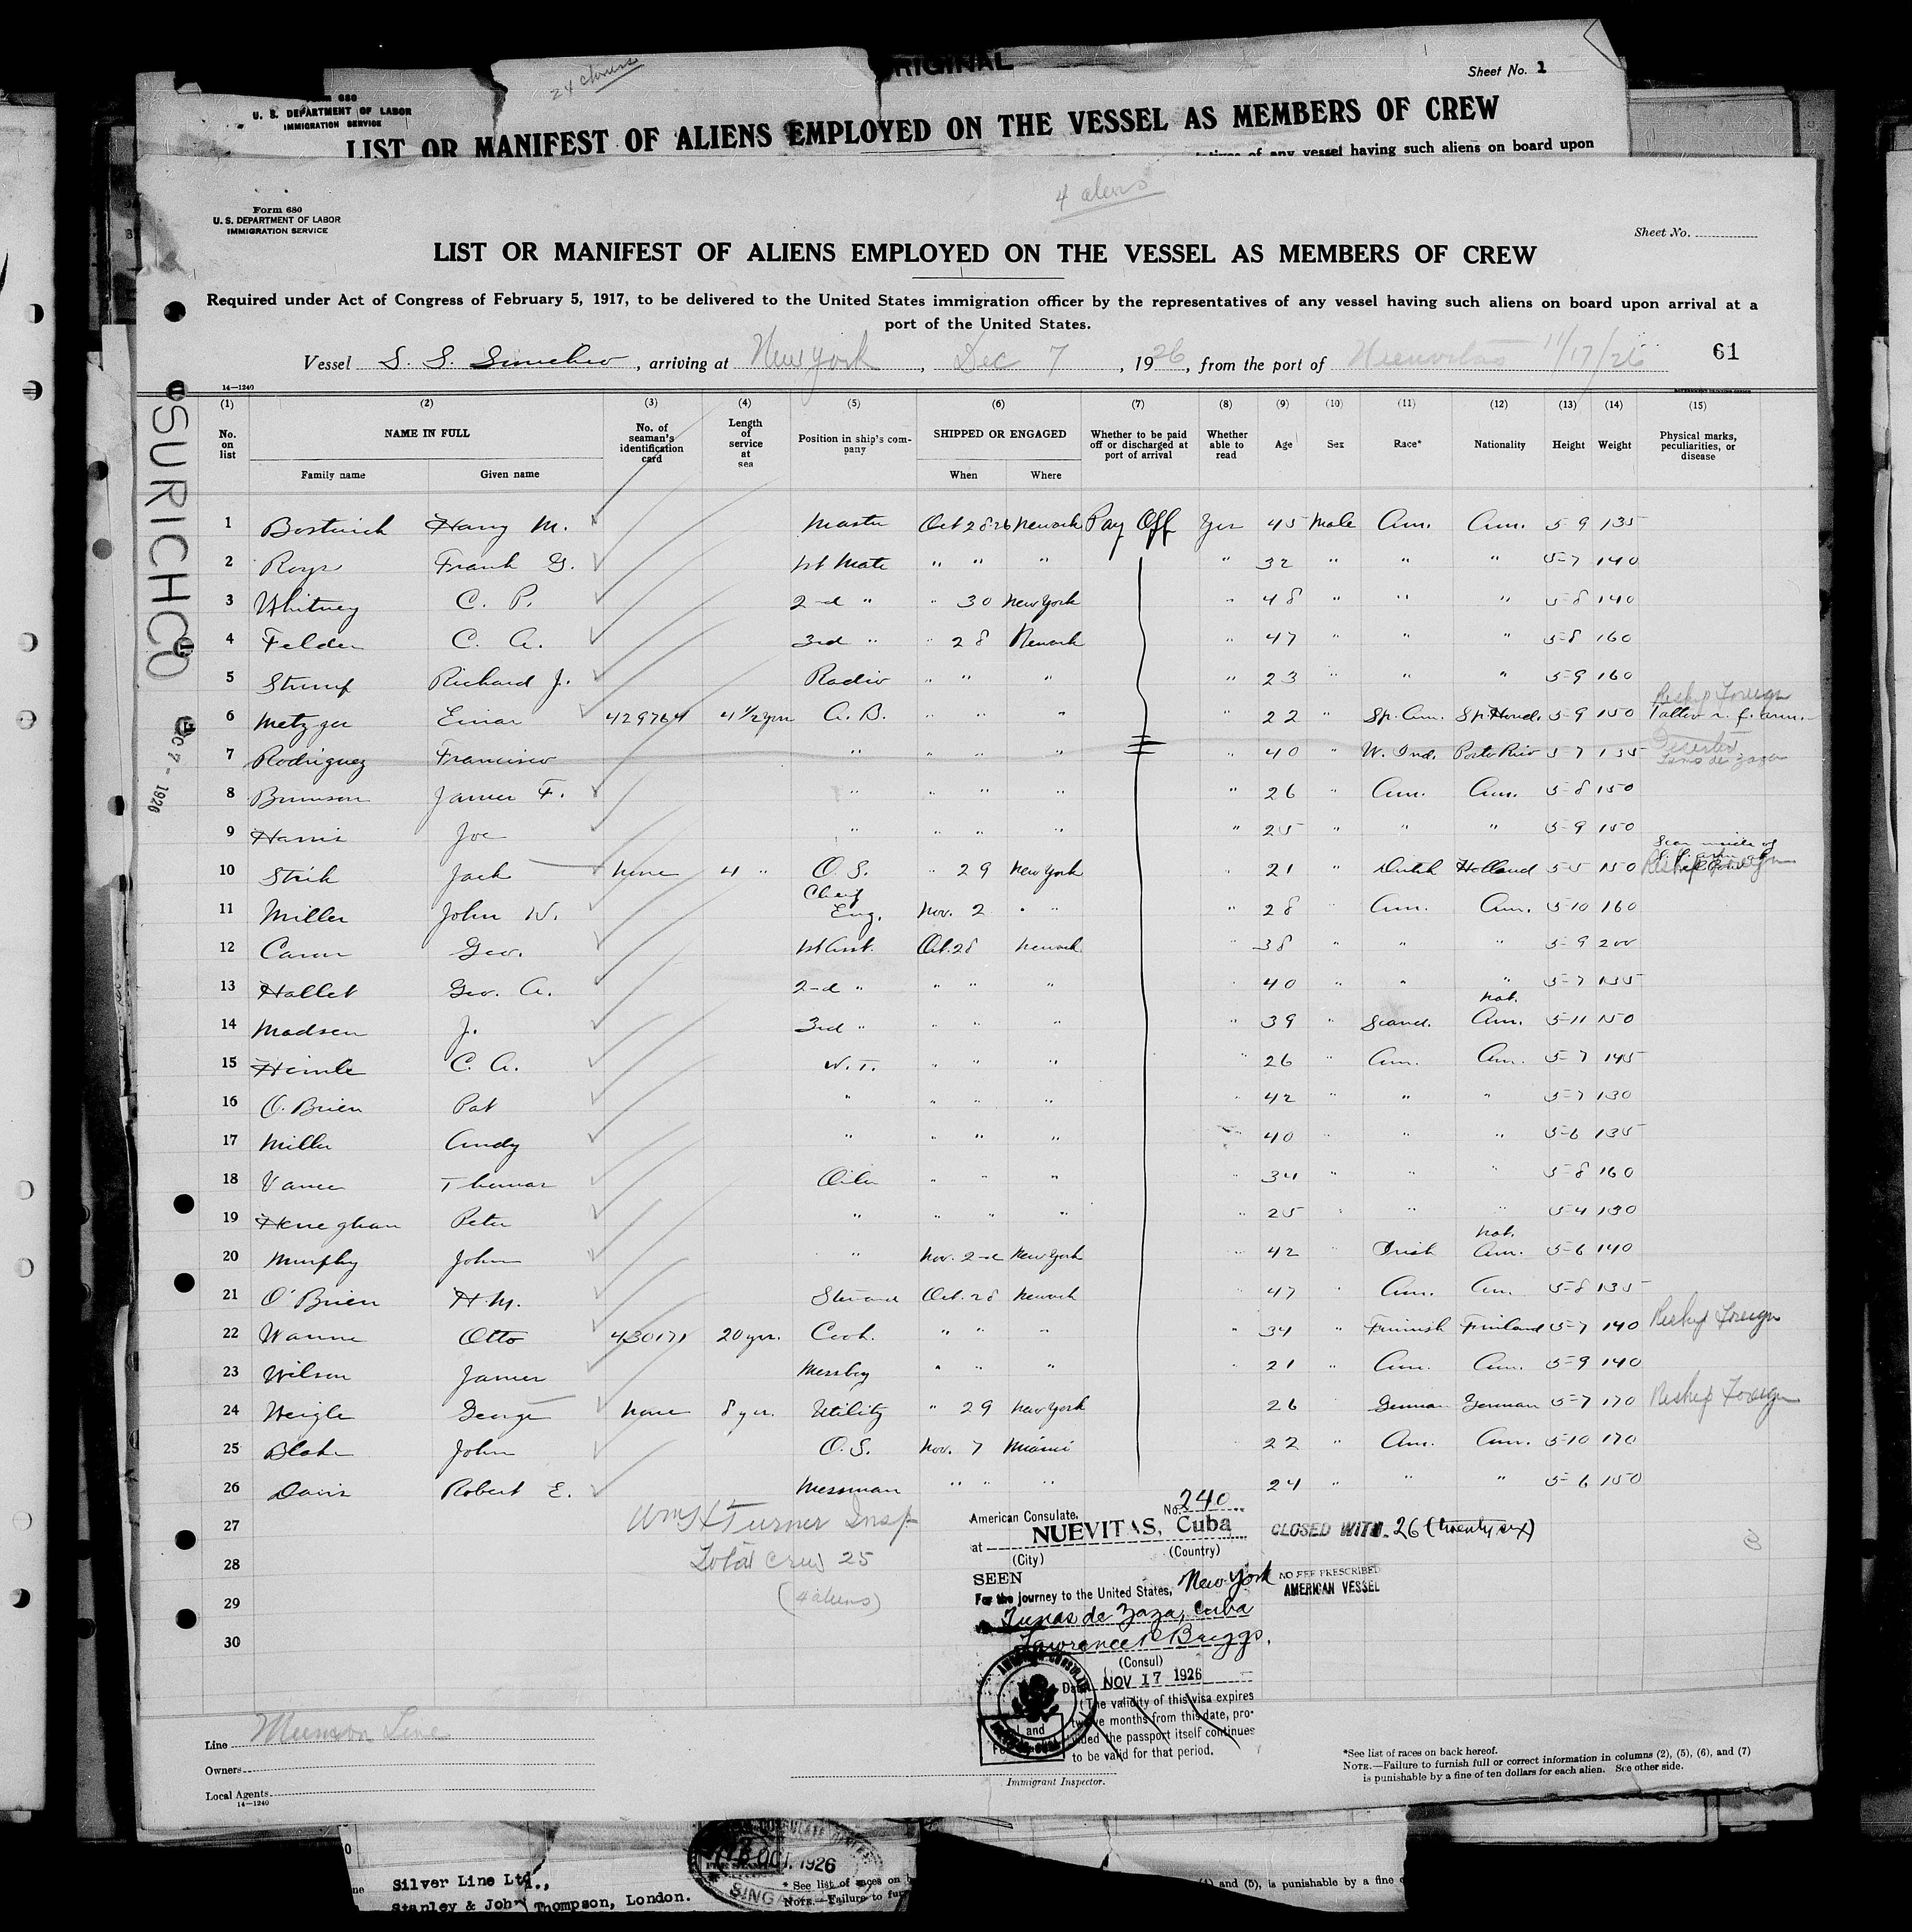 24
ORIGINAL
Sheet No. 1
Form 680
U. S. DEPARTMENT OF LABOR
IMMIGRATION SERVICE
LIST OR MANIFEST OF ALIENS EMPLOYED ON THE VESSEL AS MEMBERS OF CREW
of any vessel having such aliens on board upon
4 aliens
Form 680
U. S. DEPARTMENT OF LABOR
IMMIGRATION SERVICE
Sheet No.
LIST OR MANIFEST OF ALIENS EMPLOYED ON THE VESSEL AS MEMBERS OF CREW
Required under Act of Congress of February 5, 1917, to be delivered to the United States immigration officer by the representatives of any vessel having such aliens on board upon arrival at a
port of the United States.
Vessel S. S., arriving at New York, Dec 7, 1926, from the port of Nuevitas 11/17/26 61
14—1240
SURICHCO
DEC 7 - 1926
(1) (2) (3) (4) (5) (6) (7) (8) (9) (10) (11) (12) (13) (14) (15)
No. on list NAME IN FULL Family name Given name No. of seaman's identification card Length of service at sea Position in ship's company SHIPPED OR ENGAGED When Where Whether to be paid off or discharged at port of arrival Whether able to read Age Sex Race* Nationality Height Weight Physical marks, peculiarities, or disease
1 Bostwick Harry M. Master Oct 28 26 Newark Pay Off Yes 45 Male Am. Am. 5-9 135
2 Frank G. 1st Mate " " " " 32 " " " 5-7 140
3 Whitney C. P. 2-d " " 30 New York " 48 " " " 5-8 140
4 Felder C. A. 3rd " " 28 Newark " 47 " " " 5-8 160
5 Stumf Richard J. Radio " " " " 23 " " " 5-9 160
6 Metzger Einar 429764 4 1/2 yrs A. B. " " " 22 " Sp. Am. Sp. Hond. 5-9 150 Reship Foreign Tattoo r. f. arm.
7 Rodriguez Francisco " " " " 40 " W. Ind. Porto Rico 5 7 135 Deserted Tunas de Zaza
8 Brunson James F. " " " " " 26 " Am. Am. 5-8 150
9 Harris Joe " " " " " 25 " " " 5-9 150
10 Strik Jack None 4 " O. S. " 29 New York " 21 " Dutch Holland 5-5 150 Scar inside of Reship Foreign
11 Miller John W. Chief Eng. Nov. 2 " " " 28 " Am. Am. 5-10 160
12 Geo. 1st Asst. Oct. 28 Newark " 38 " " " 5-9 200
13 Hallet Geo. A. 2-d " " " " " 40 " " " 5-7 135
14 Madsen J. 3rd " " " " " 39 " Scand. Nat. Am. 5-11 150
15 C. A. W. T. " " " " 26 " Am. Am. 5-7 145
16 O'Brien Pat " " " " " 42 " " " 5-7 130
17 Miller Andy " " " " " 40 " " " 5-6 135
18 Vance Thomas Oiler " " " " 34 " " " 5-8 160
19 Heneghan Peter " " " " " 25 " " " 5-4 130
20 Murphy John " Nov. 2-d New York " 42 " Irish Nat. Am. 5-6 140
21 O'Brien H. M. Steward Oct. 28 Newark " 47 " Am. Am. 5-8 135
22 Otto 430171 20 yrs. Cook. " " " " 34 " Finnish Finland 5-7 140 Reship Foreign
23 Wilson James Messboy " " " " 21 " Am. Am. 5-9 140
24 Weigle George None 8 yrs. Utility " 29 New York 26 " German German 5-7 170 Reship Foreign
25 Blake John O. S. Nov. 7 Miami " 22 " Am. Am. 5-10 170
26 Davis Robert E. Messman " " " 24 " " " 5-6 150
27
28
29
30
Wm H Turner Insp
Total crew 25
(4 aliens)
American Consulate. No. 240
at NUEVITAS, Cuba
(City) (Country)
SEEN
For the journey to the United States, New York
Tunas de Zaza, Cuba
Lawrence P. Briggs.
(Consul)
Date NOV 17 1926
(The validity of this visa expires
twelve months from this date, pro-
vided the passport itself continues
to be valid for that period.
CLOSED WITH 26 (twenty six)
NO FEE PRESCRIBED
AMERICAN VESSEL
Line Munson Line
Owners
Local Agents
14—1240
Immigrant Inspector.
*See list of races on back hereof.
NOTE.—Failure to furnish full or correct information in columns (2), (5), (6), and (7)
is punishable by a fine of ten dollars for each alien. See other side.
Silver Line Ltd.,
Stanley & John Thompson, London.
OCT. 1926
* See list of races on
NOTE.—Failure to
and (5), is punishable by a fine